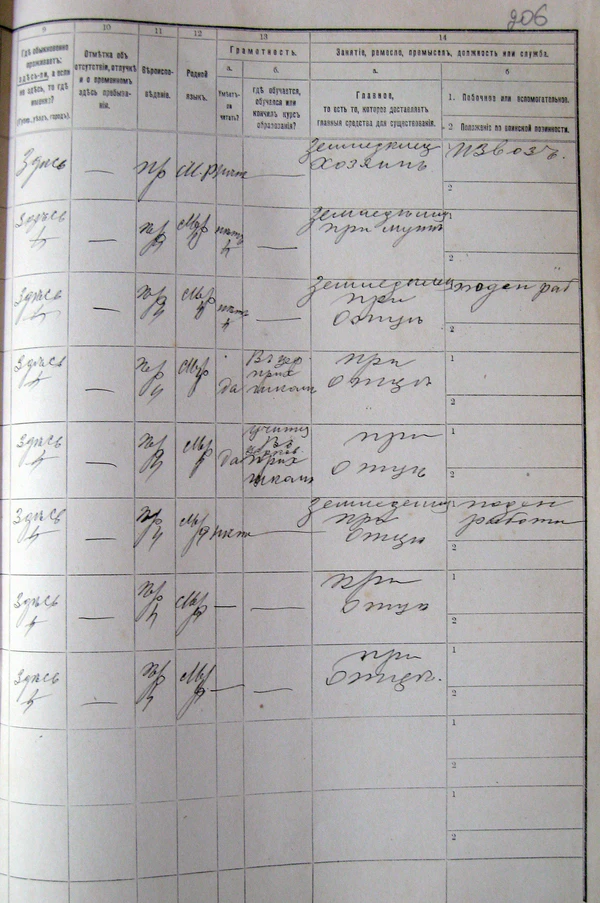 206
9 10 11 12 13 14
Гдѣ обыкновенно проживаетъ: здѣсь-ли, а если не здѣсь, то гдѣ именно?
(Губ., уѣздъ, городъ).
Отмѣтка объ отсутствіи, отлучкѣ и о временномъ здѣсь пребываніи.
Вѣроиспо-
вѣданіе.
Родной
языкъ.
Грамотность.
а.
Умѣетъ-ли читать?
б.
гдѣ обучается, обучался или кончилъ курсъ образованія?
Занятіе, ремесло, промыселъ, должность или служба.
а.
Главное,
то есть то, которое доставляетъ главныя средства для существованія.
б
1. Побочное или вспомогательное.
2 Положеніе по воинской повинности.
Здѣсь — пр — Земледѣлец извозъ.
хозяинъ
2
Здѣсь — пр нѣтъ — Земледѣлец
при мужѣ
2
Здѣсь — пр нѣтъ — Земледѣлец поден раб
при
отцѣ
2
Здѣсь — пр да при 1
школѣ отцѣ
2
Здѣсь — пр да учится при 1
прих отцѣ
школѣ
2
Здѣсь — пр нѣтъ — Земледѣлец поден
при работа
отцѣ
2
Здѣсь — пр — — при 1
отцѣ
2
Здѣсь — пр — — при 1
отцѣ.
2
1
2
1
2